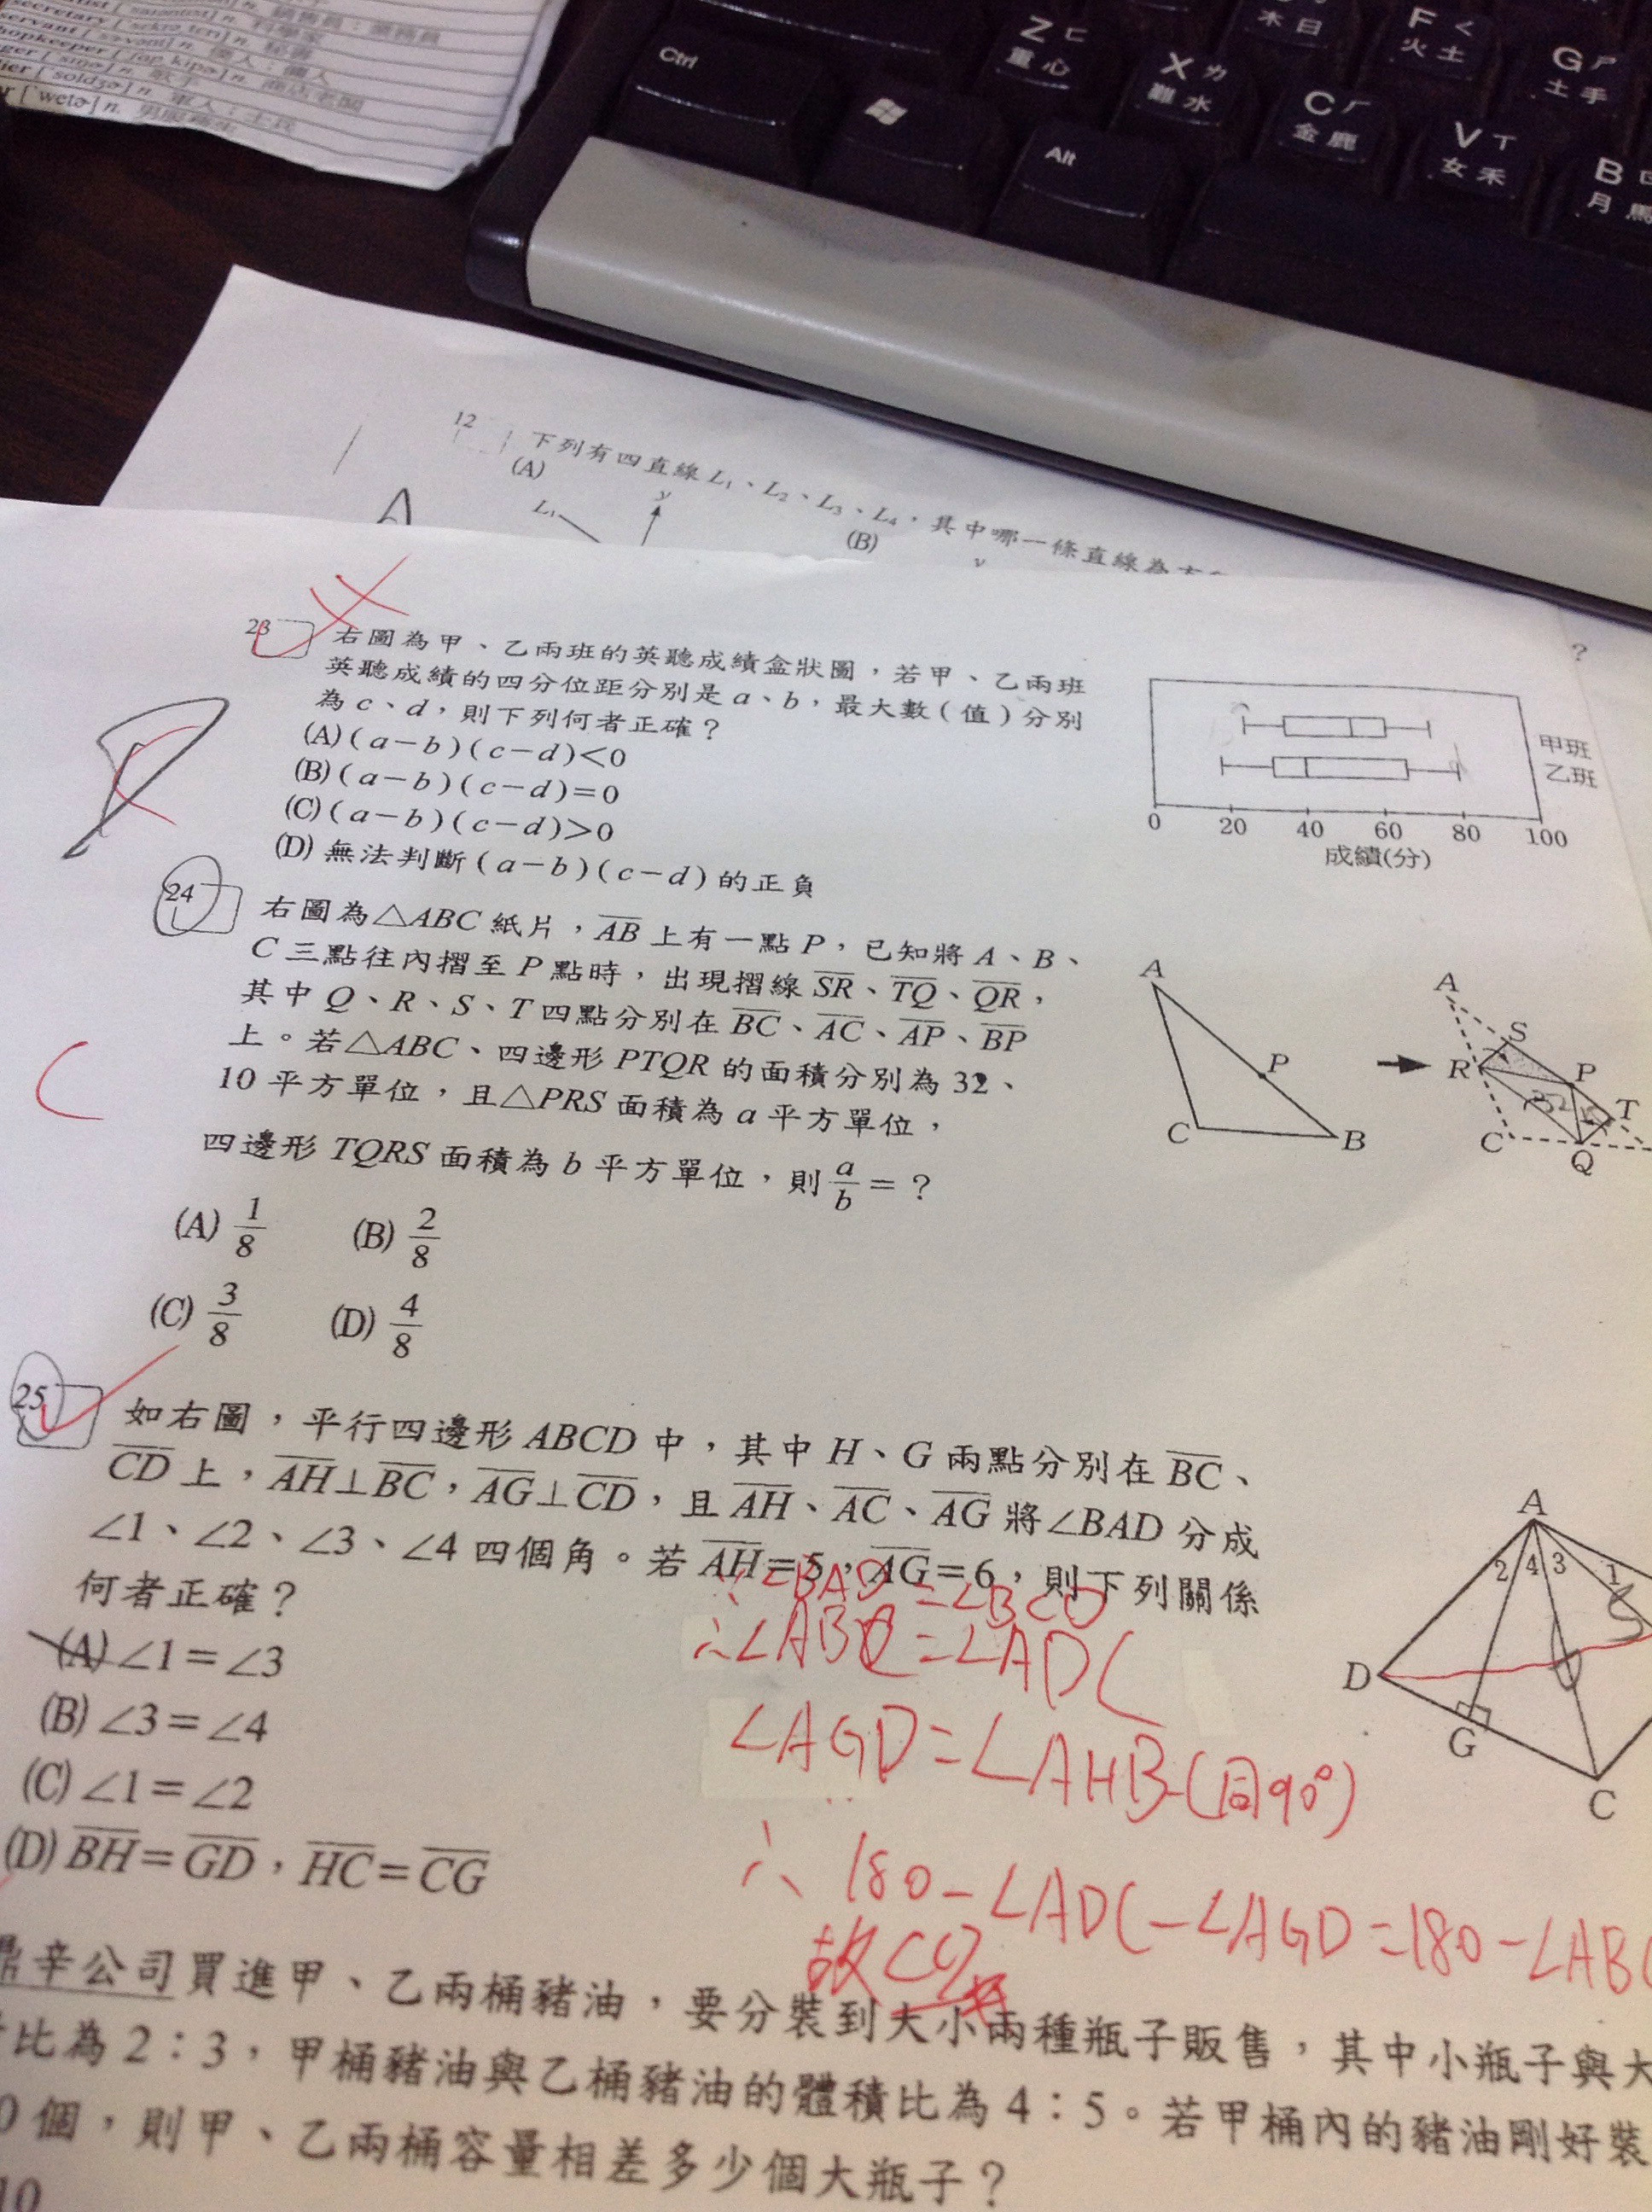 secretary [ˋsɛkrəˏtɛrɪ] n. 秘書
Ctrl
Alt
Z ㄈ
重 心
X ㄌ
難 水
木 日
C ㄏ
金 鹿
F ㄑ
火 土
V ㄒ
女 禾
G ㄕ
土 手
B ㄖ
月 馬
12
下列有四直線 L₁、L₂、L₃、L₄,其中哪一條直線為
(A)
L₁
y
(B)
?
23
右圖為甲、乙兩班的英聽成績盒狀圖,若甲、乙兩班
英聽成績的四分位距分別是 a、b,最大數(值)分別
為 c、d,則下列何者正確?
(A)(a-b)(c-d)<0
(B)(a-b)(c-d)=0
(C)(a-b)(c-d)>0
(D) 無法判斷(a-b)(c-d)的正負
甲班
乙班
0 20 40 60 80 100
成績(分)
24
右圖為△ABC 紙片,AB 上有一點 P,已知將 A、B、
C 三點往內摺至 P 點時,出現摺線 SR、TQ、QR,
其中 Q、R、S、T 四點分別在 BC、AC、AP、BP
上。若△ABC、四邊形 PTQR 的面積分別為 32、
10 平方單位,且△PRS 面積為 a 平方單位,
四邊形 TQRS 面積為 b 平方單位,則 a/b = ?
(A) 1/8 (B) 2/8
(C) 3/8 (D) 4/8
A
P
C B
A
S
R P
T
C Q
C
25
如右圖,平行四邊形 ABCD 中,其中 H、G 兩點分別在 BC、
CD 上,AH⊥BC,AG⊥CD,且 AH、AC、AG 將∠BAD 分成
∠1、∠2、∠3、∠4 四個角。若 AH=5,AG=6,則下列關係
何者正確?
(A) ∠1=∠3
(B) ∠3=∠4
(C) ∠1=∠2
(D) BH=GD,HC=CG
A
2 4 3 1
D
G
C
∵∠BAD=∠BCD
∴∠ABC=∠ADC
∠AGD=∠AHB(同90°)
∴ 180-∠ADC-∠AGD=180-∠ABC
故C
鼎辛公司買進甲、乙兩桶豬油,要分裝到大小兩種瓶子販售,其中小瓶子與大
比為 2:3,甲桶豬油與乙桶豬油的體積比為 4:5。若甲桶內的豬油剛好裝
0 個,則甲、乙兩桶容量相差多少個大瓶子?
10